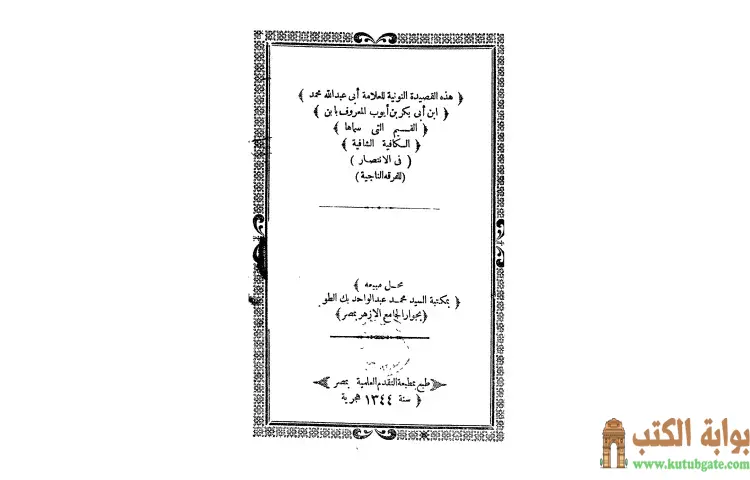 ﴿ هذه القصيدة النونية للعلامة أبى عبدالله محمد ﴾
﴿ ابن أبى بكر بن أيوب المعروف بابن ﴾
﴿ القسيم التى سماها ﴾
﴿ الكافية الشافية ﴾
( فى الانتصار )
(للفرقه الناجية)
محل مبيعه ﴾
﴿ بمكتبة السيد محمد عبدالواحد بك الطو
﴿بجوار الجامع الازهر بمصر﴾
طبع بمطبعة التقدم العلمية بمصر
﴿ سنة ١٣٤٤ هجرية ﴾
بوابة الكتب
www.kutubgate.com